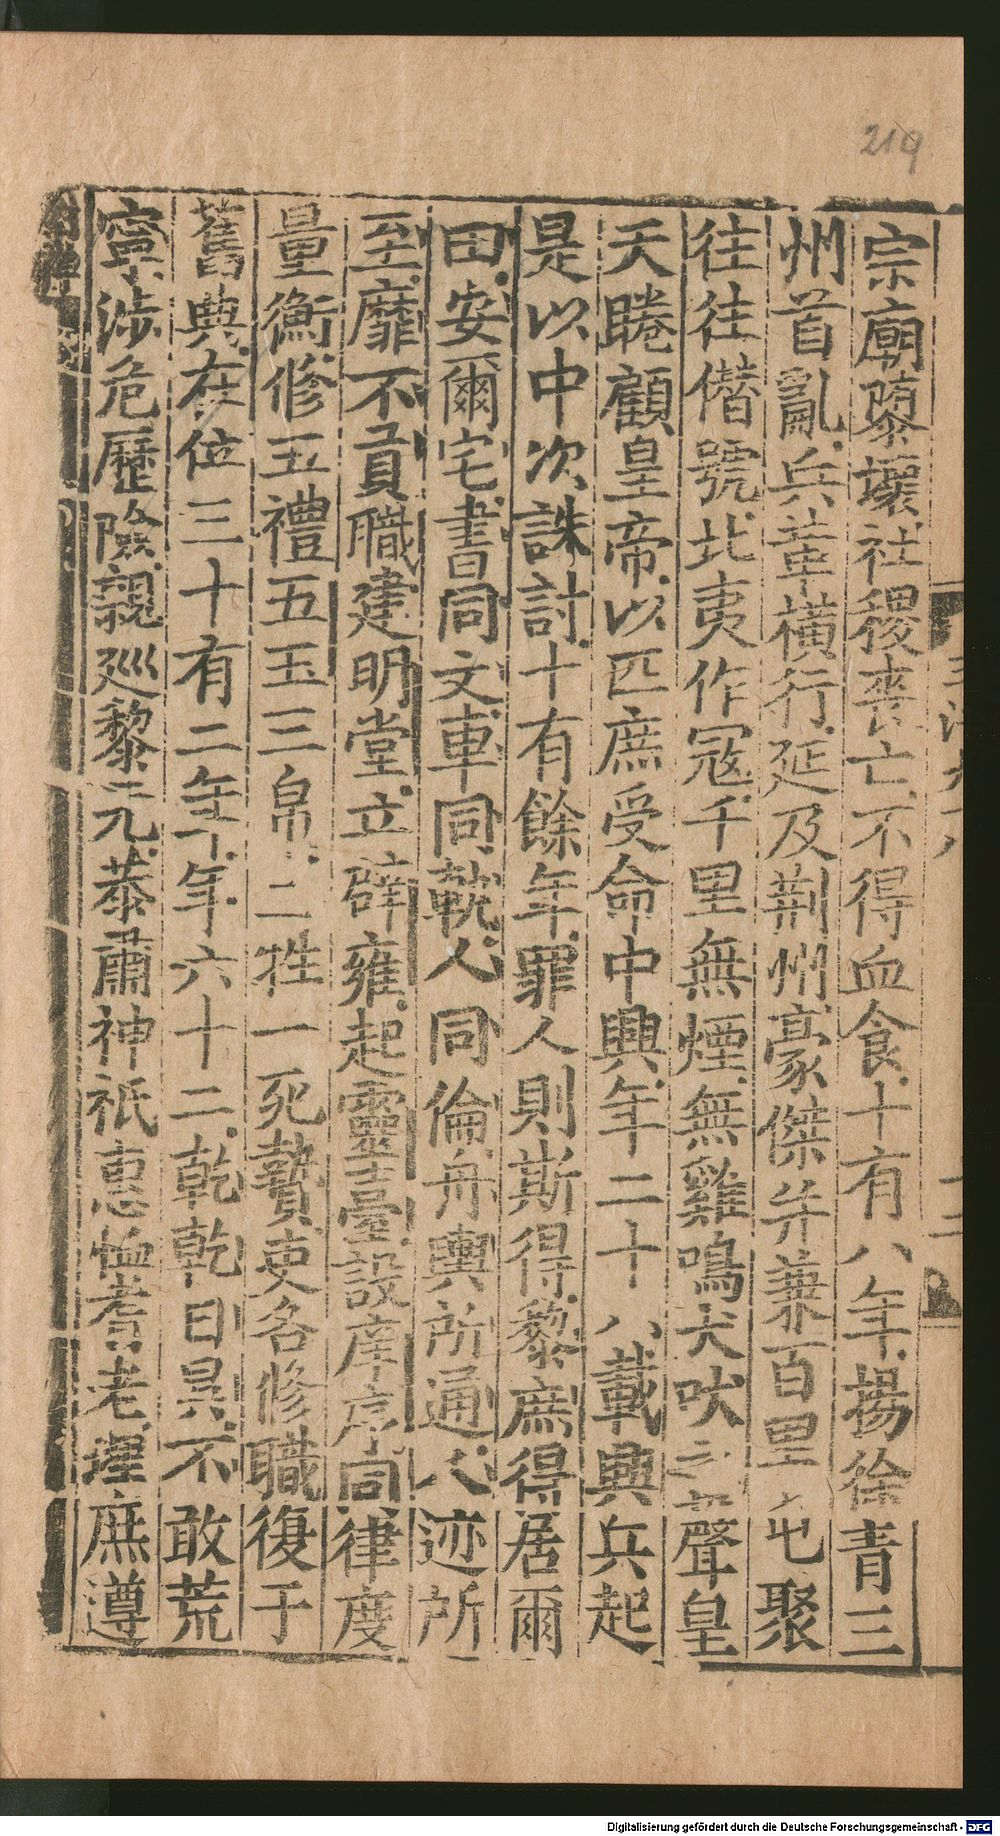 219
宗廟隳壞社稷喪亡不得血食十有八年揚徐青三
州首亂兵革橫行延及荆州豪傑并兼百里屯聚
往往僣號北夷作冦千里無煙無雞鳴犬吠之聲皇
天睠顧皇帝以匹庶受命中興年二十八載興兵起
是以中次誅討十有餘年罪人則斯得黎庶得居爾
田安爾宅書同文車同軌人同倫舟輿所通人迹所
至靡不貢職建明堂立辟雍起靈臺設庠序同律度
量衡修五禮五玉三帛二牲一死贄吏各修職復于
舊典在位三十有二年年六十二乾乾日昃不敢荒
寧涉危歷險親巡黎元恭肅神祇惠恤耆老理庶遵
Digitalisierung gefördert durch die Deutsche Forschungsgemeinschaft - DFG